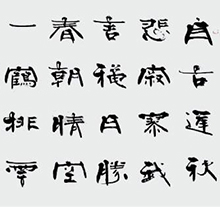 自古逢秋
悲寂寥我
言秋日勝
春朝晴空
一鶴排雲